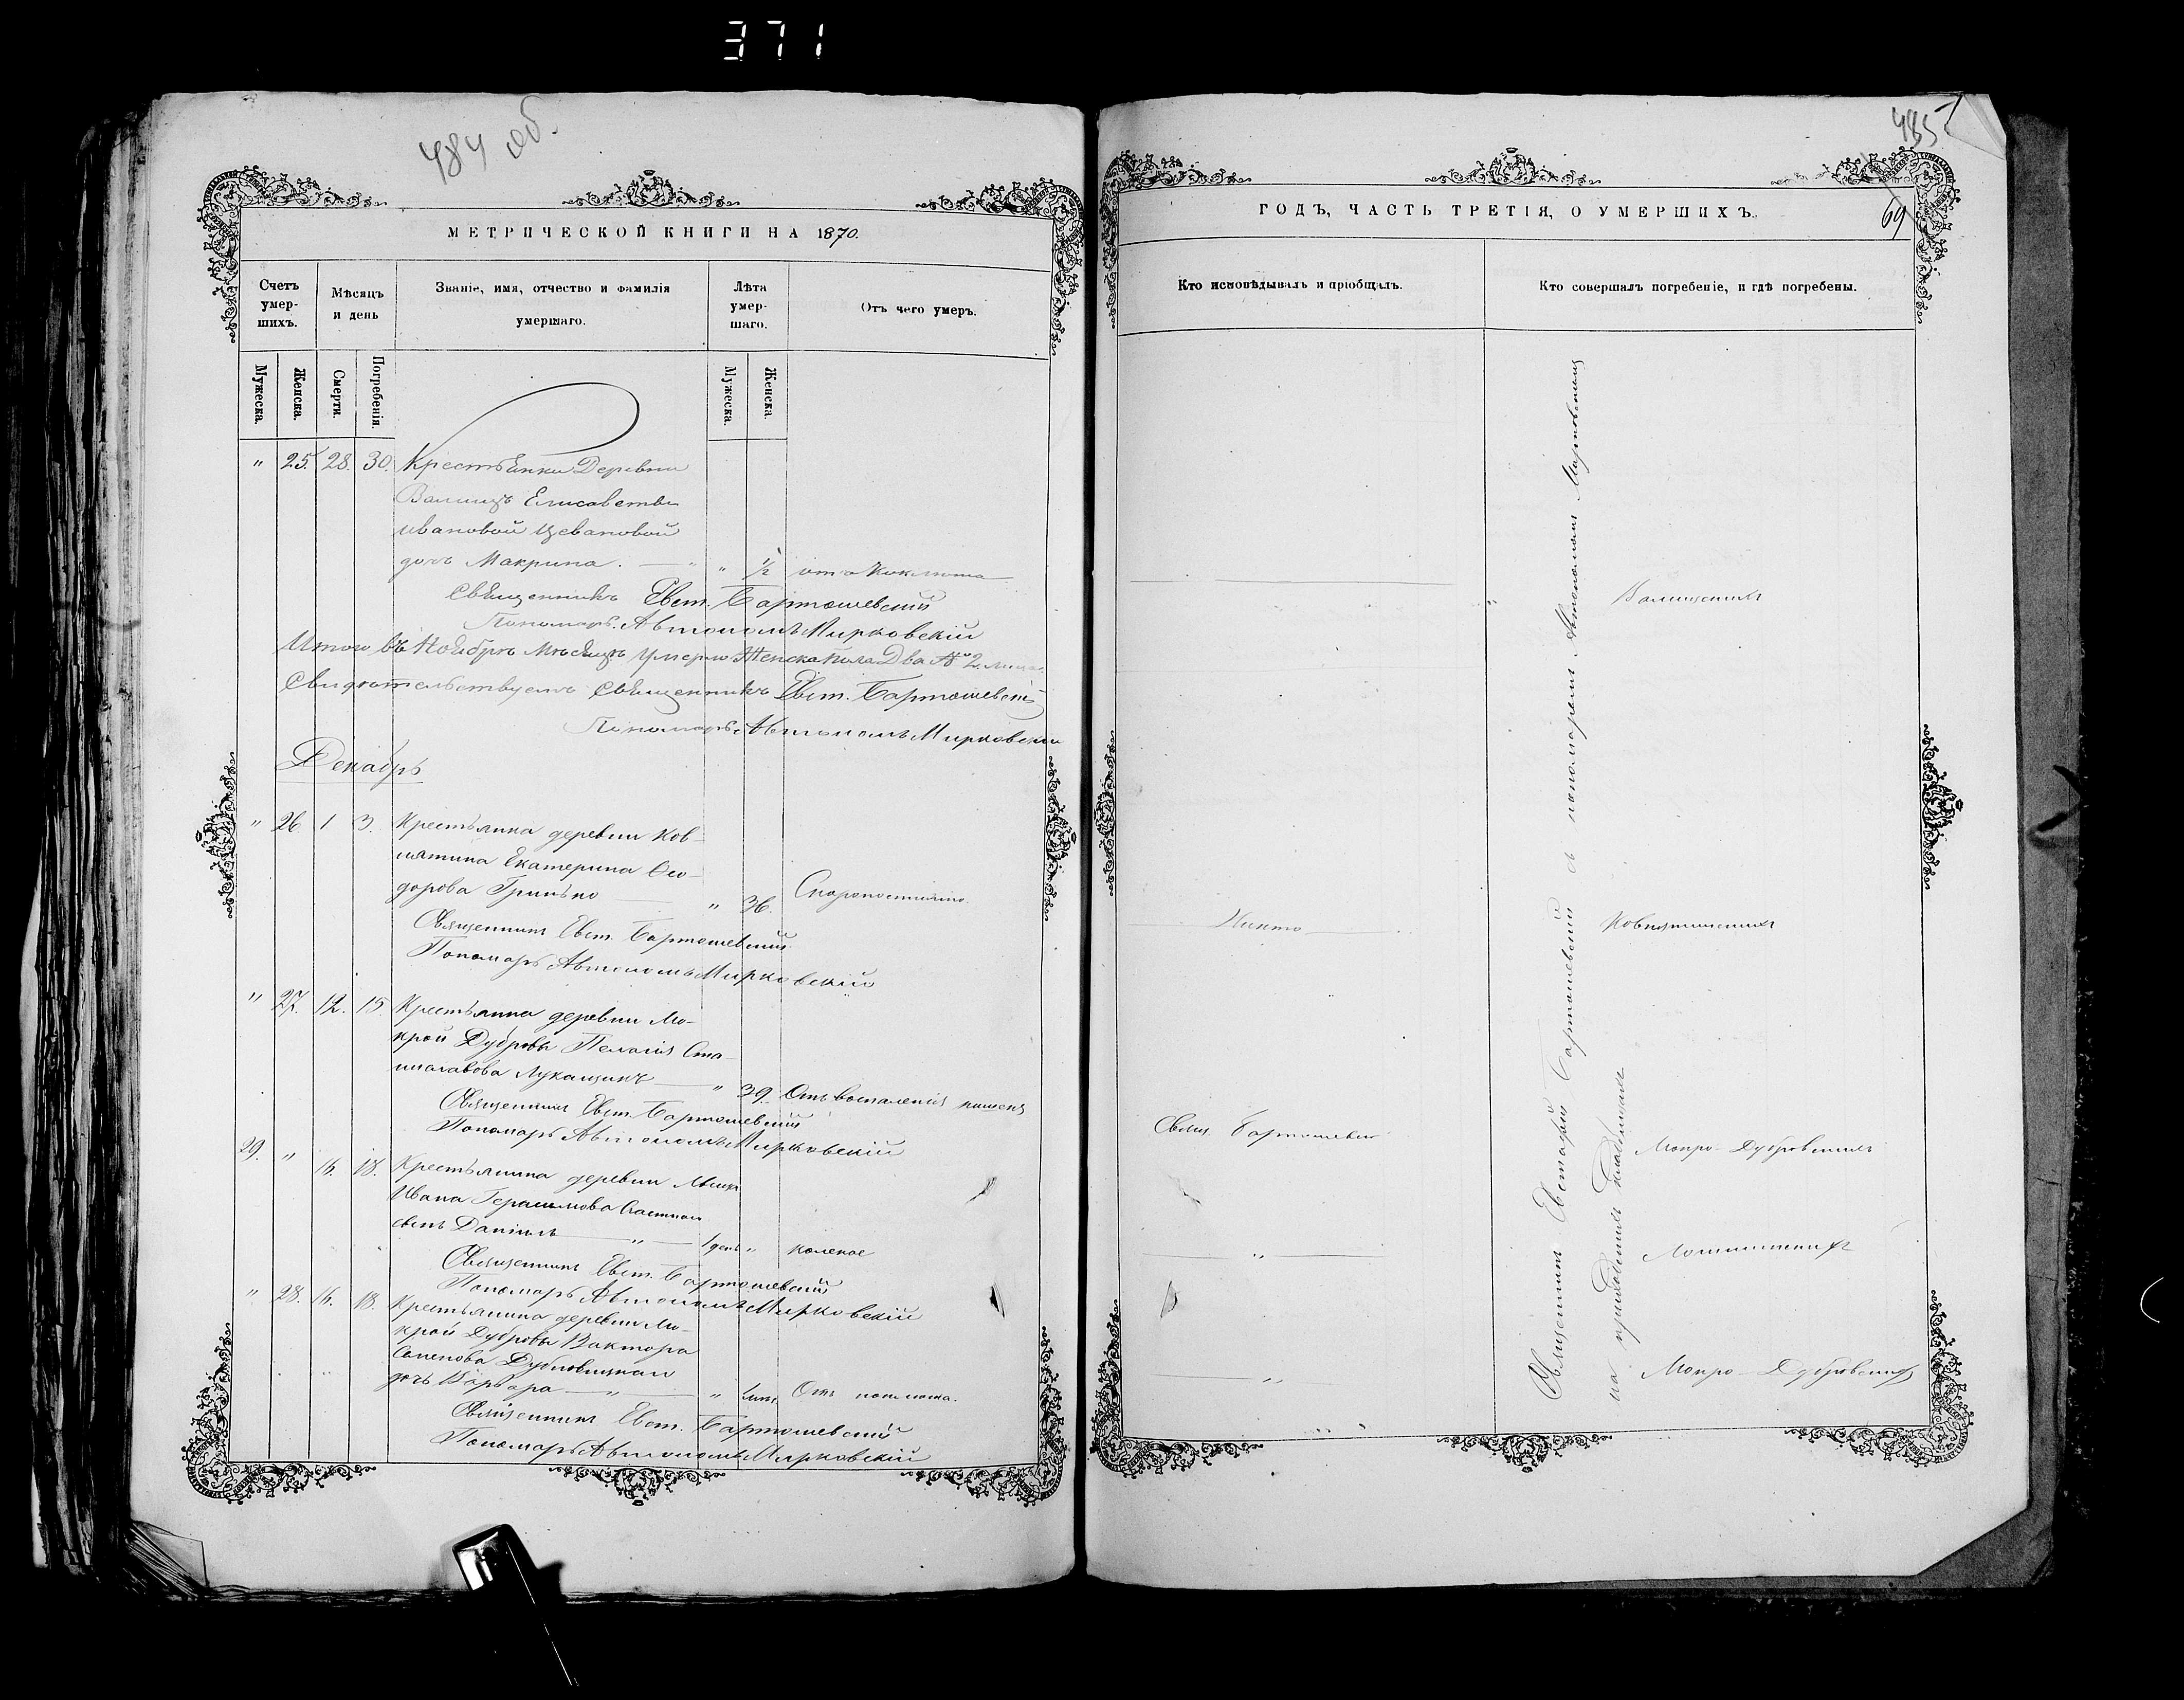 371
484 об.
МЕТРИЧЕСКОЙ КНИГИ НА 1870.
Счетъ умер-шихъ.
Мѣсяцъ и день
Званіе, имя, отчество и фамилія умершаго.
Лѣта умер-шаго.
Отъ чего умеръ.
Мужеска.
Женска.
Смерти.
Погребенія.
Мужеска.
Женска.
" 25. 28. 30. Крестьянки Деревни
Елисаветы
Ивановой
дочь Макрина. " 1/2 отъ Коклюша
Священникъ Евст. Бартошевскій
Пономарь Автономъ Мирковскій
Итого въ Ноябрѣ Мѣсяцѣ умерло Женска Пола Два № 2
Свидѣтельствуемъ Священникъ Евст. Бартошевскій
Пономарь Автономъ Мирковскій
Декабрь
" 26 1 3. Крестьянка деревни Ков-
нятина Екатерина Ѳео-
дорова Гринько " 36. Скоропостижно.
Священникъ Евст. Бартошевскій
Пономарь Автономъ Мирковскій
" 27. 12. 15. Крестьянка деревни Мо-
крой Дубровы Пелагія Ста-
ниславова Лукащикъ " 39. Отъ воспаленія кишекъ
Священникъ Евст. Бартошевскій
Пономарь Автономъ Мирковскій
29. " 16. 18. Крестьянина деревни
Ивана Герасимова
сынъ Даніилъ " 1 день "
Священникъ Евст. Бартошевскій
Пономарь Автономъ Мирковскій
" 28. 16. 18. Крестьянина деревни Мо-
крой Дубровы Виктора
Семенова
дочь Варвара " " Отъ коклюша.
Священникъ Евст. Бартошевскій
Пономарь Автономъ Мирковскій
485
69
ГОДЪ, ЧАСТЬ ТРЕТІЯ, О УМЕРШИХЪ.
Кто исповѣдывалъ и пріобщалъ.
Кто совершалъ погребеніе, и гдѣ погребены.
Никто
Ковнятинскомъ
Свящ. Бартошевскій
Мокро-Дубровскомъ
"
"
Мокро-Дубровскомъ
Священникъ Евстафій Бартошевскій съ пономаремъ Автономомъ Мирковскимъ
на приходскихъ кладбищахъ